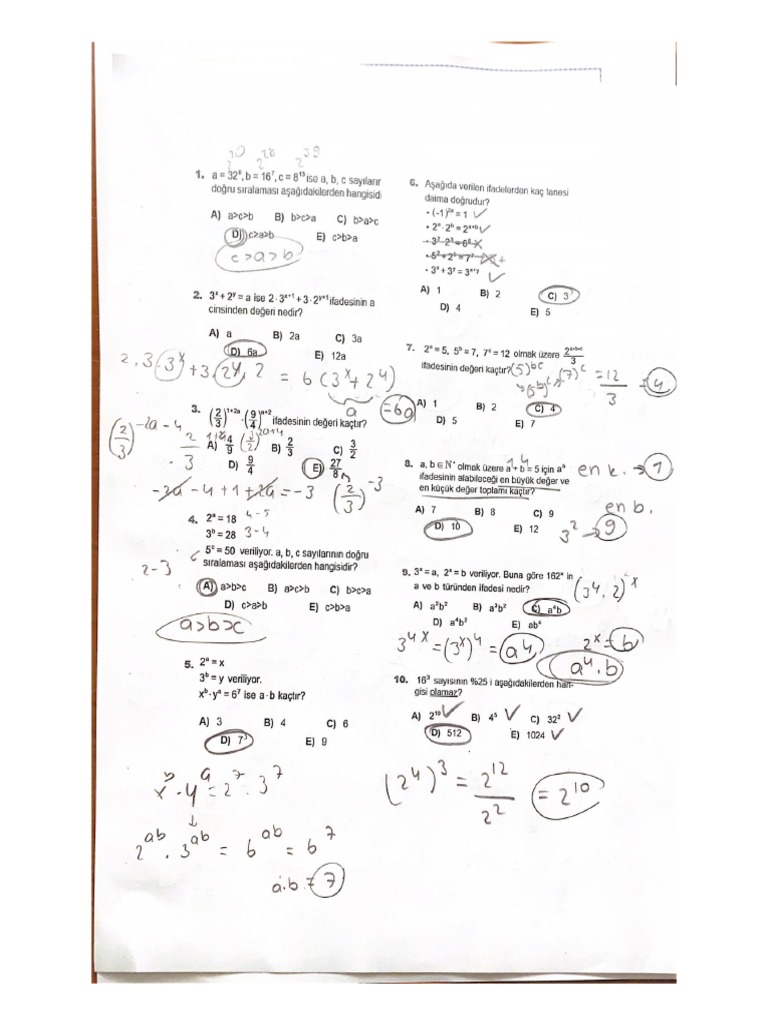 2^30 2^28 2^39
1. a = 32^6, b = 16^7, c = 8^13 ise a, b, c sayıların
doğru sıralaması aşağıdakilerden hangisidi
A) a>c>b B) b>c>a C) b>a>c
D) c>a>b E) c>b>a
c>a>b
2. 3^x + 2^y = a ise 2 · 3^(x+1) + 3 · 2^(y+1) ifadesinin a
cinsinden değeri nedir?
A) a B) 2a C) 3a
D) 6a E) 12a
2.3.3^x + 3.2^y.2 = 6(3^x + 2^y)
a = 6a
3. (2/3)^(1+2a) · (9/4)^(a+2) ifadesinin değeri kaçtır?
(2/3)^(-2a-4) · (2/3)^(1+2a) (3/2)^(2a+4)
A) 4/9 B) 2/3 C) 3/2
D) 9/4 E) 27/8
-2a - 4 + 1 + 2a = -3 (2/3)^-3
4. 2^a = 18 4-5
3^b = 28 3-4
5^c = 50 veriliyor. a, b, c sayılarının doğru
2-3 sıralaması aşağıdakilerden hangisidir?
A) a>b>c B) a>c>b C) b>c>a
D) c>a>b E) c>b>a
a>b>c
5. 2^a = x
3^b = y veriliyor.
x^b · y^a = 6^7 ise a · b kaçtır?
A) 3 B) 4 C) 6
D) 7 E) 9
x^b · y^a = 2^7 · 3^7
↓
2^ab · 3^ab = 6^ab = 6^7
a.b. = 7
6. Aşağıda verilen ifadelerden kaç tanesi
daima doğrudur?
• (-1)^2a = 1 ✓
• 2^a · 2^b = 2^(a+b) ✓
• 3^x + 3^y = 3^(x+y) ✓
A) 1 B) 2 C) 3
D) 4 E) 5
7. 2^a = 5, 5^b = 7, 7^c = 12 olmak üzere 2^(a·b·c)/3
ifadesinin değeri kaçtır? (5)^bc
(5^b)^c (7)^c = 12/3 = 4
A) 1 B) 2 C) 4
D) 5 E) 7
1 4
8. a, b ∈ N⁺ olmak üzere a + b = 5 için a^b
ifadesinin alabileceği en büyük değer ve
en küçük değer toplamı kaçtır?
en k. → 1
A) 7 B) 8 C) 9
D) 10 E) 12
en b.
3^2 → 9
9. 3^x = a, 2^x = b veriliyor. Buna göre 162^x in
a ve b türünden ifadesi nedir?
(3^4. 2)^x
A) a²b² B) a³b² C) a⁴b
D) a⁴b² E) ab⁴
3^4x = (3^x)^4 = a^4 2^x = b
a^4. b
10. 16^3 sayısının %25 i aşağıdakilerden han-
gisi olamaz?
A) 2^10 ✓ B) 4^5 ✓ C) 32^2 ✓
D) 512 E) 1024 ✓
(2^4)^3 = 2^12/2^2 = 2^10